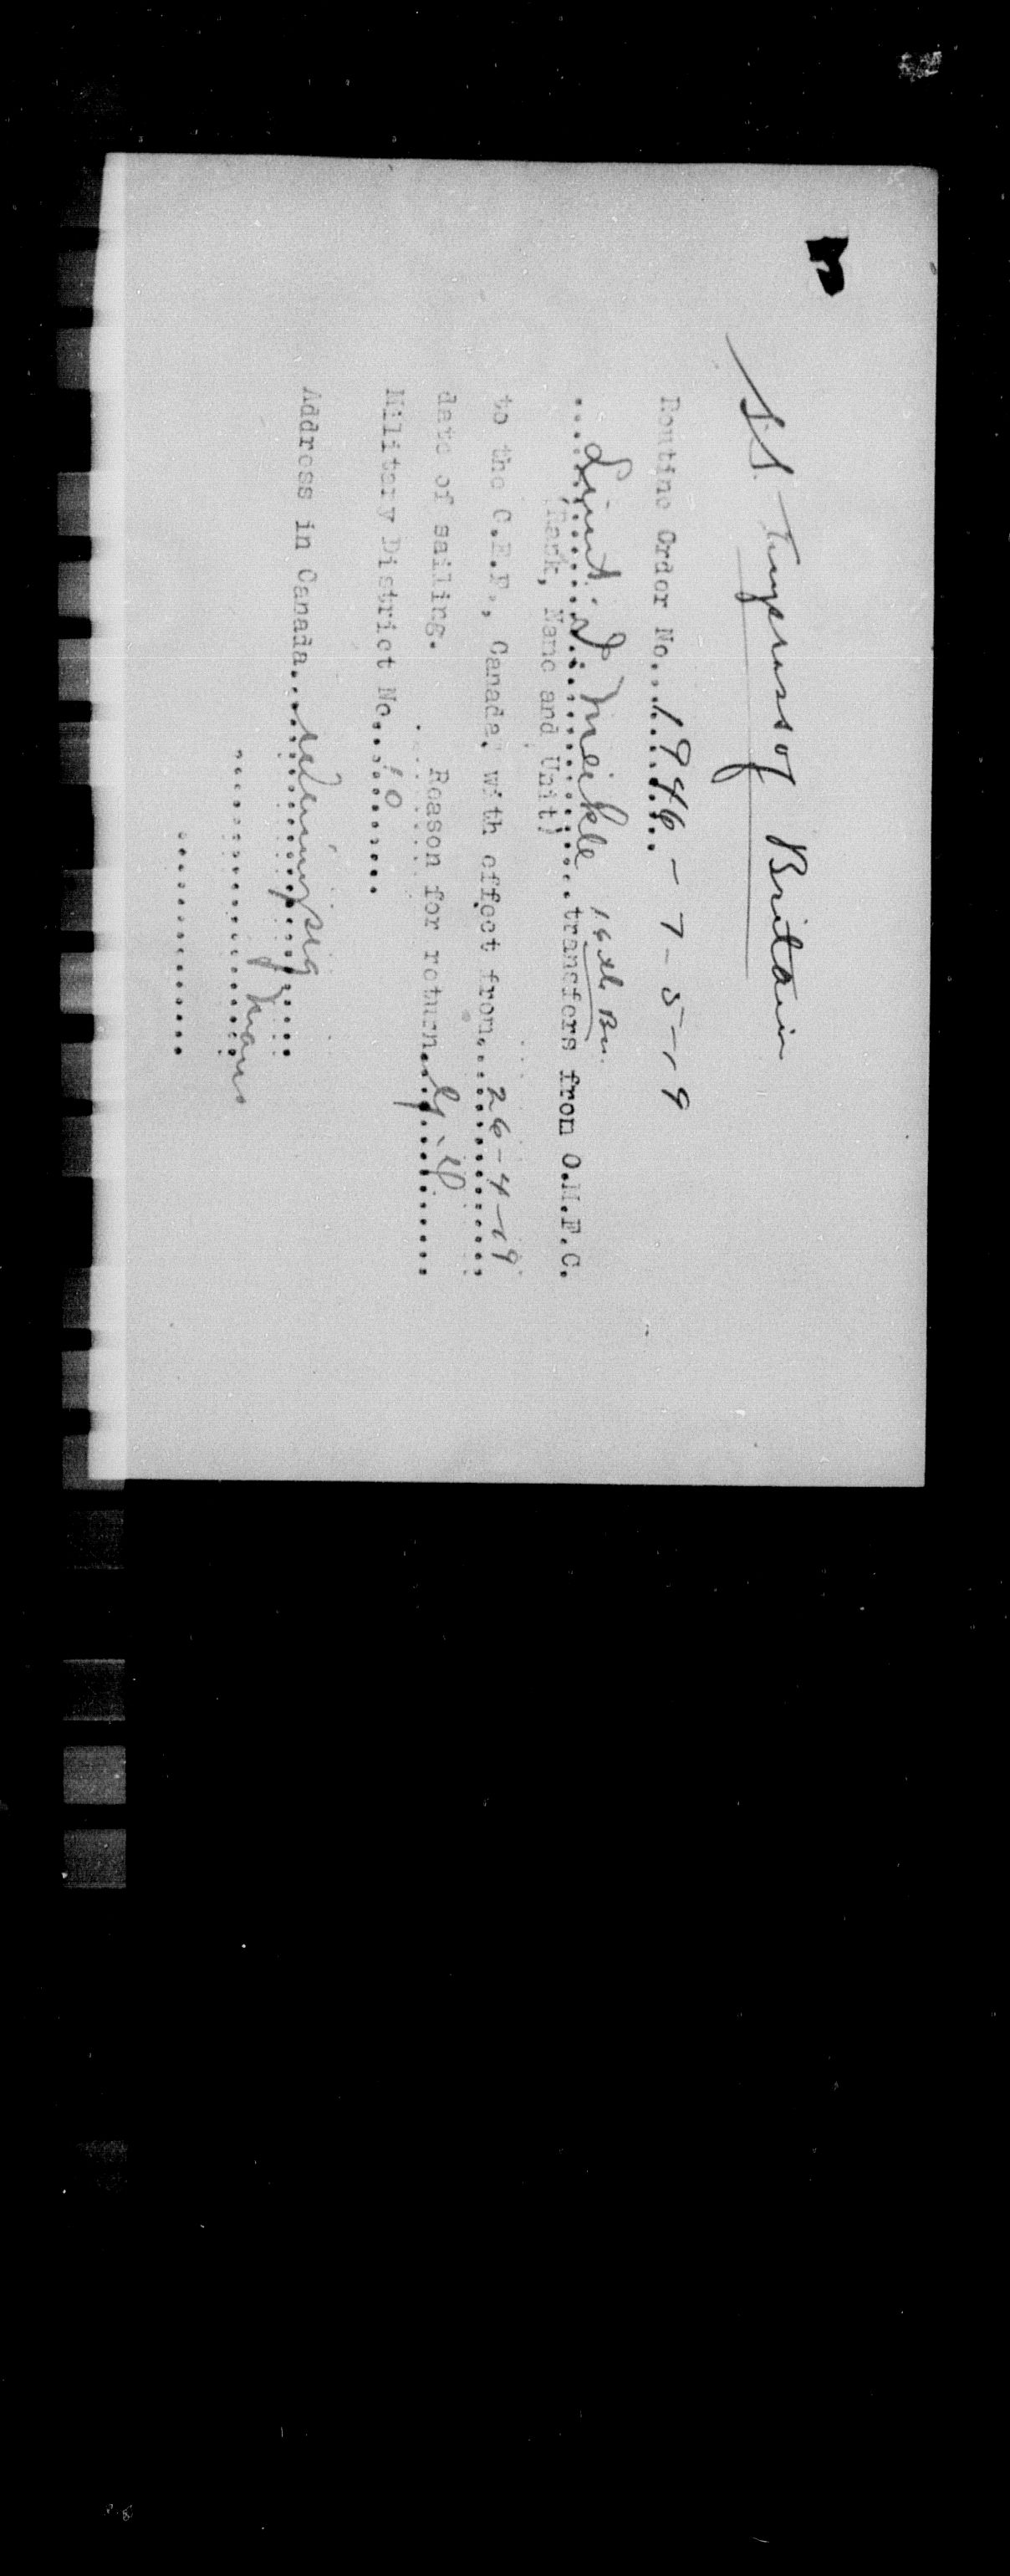 S.S. Empress of Britain
Routine Order No...1946 - 7-5-19
Lieut. D. Meikle 16th Bn. transfers from O.M.F.C.
(Rank, Name and Unit)
to the C.E.F., Canada, with effect from...26-4-19
date of sailing. Reason for return...
Military District No...10
Address in Canada...Winnipeg
Man